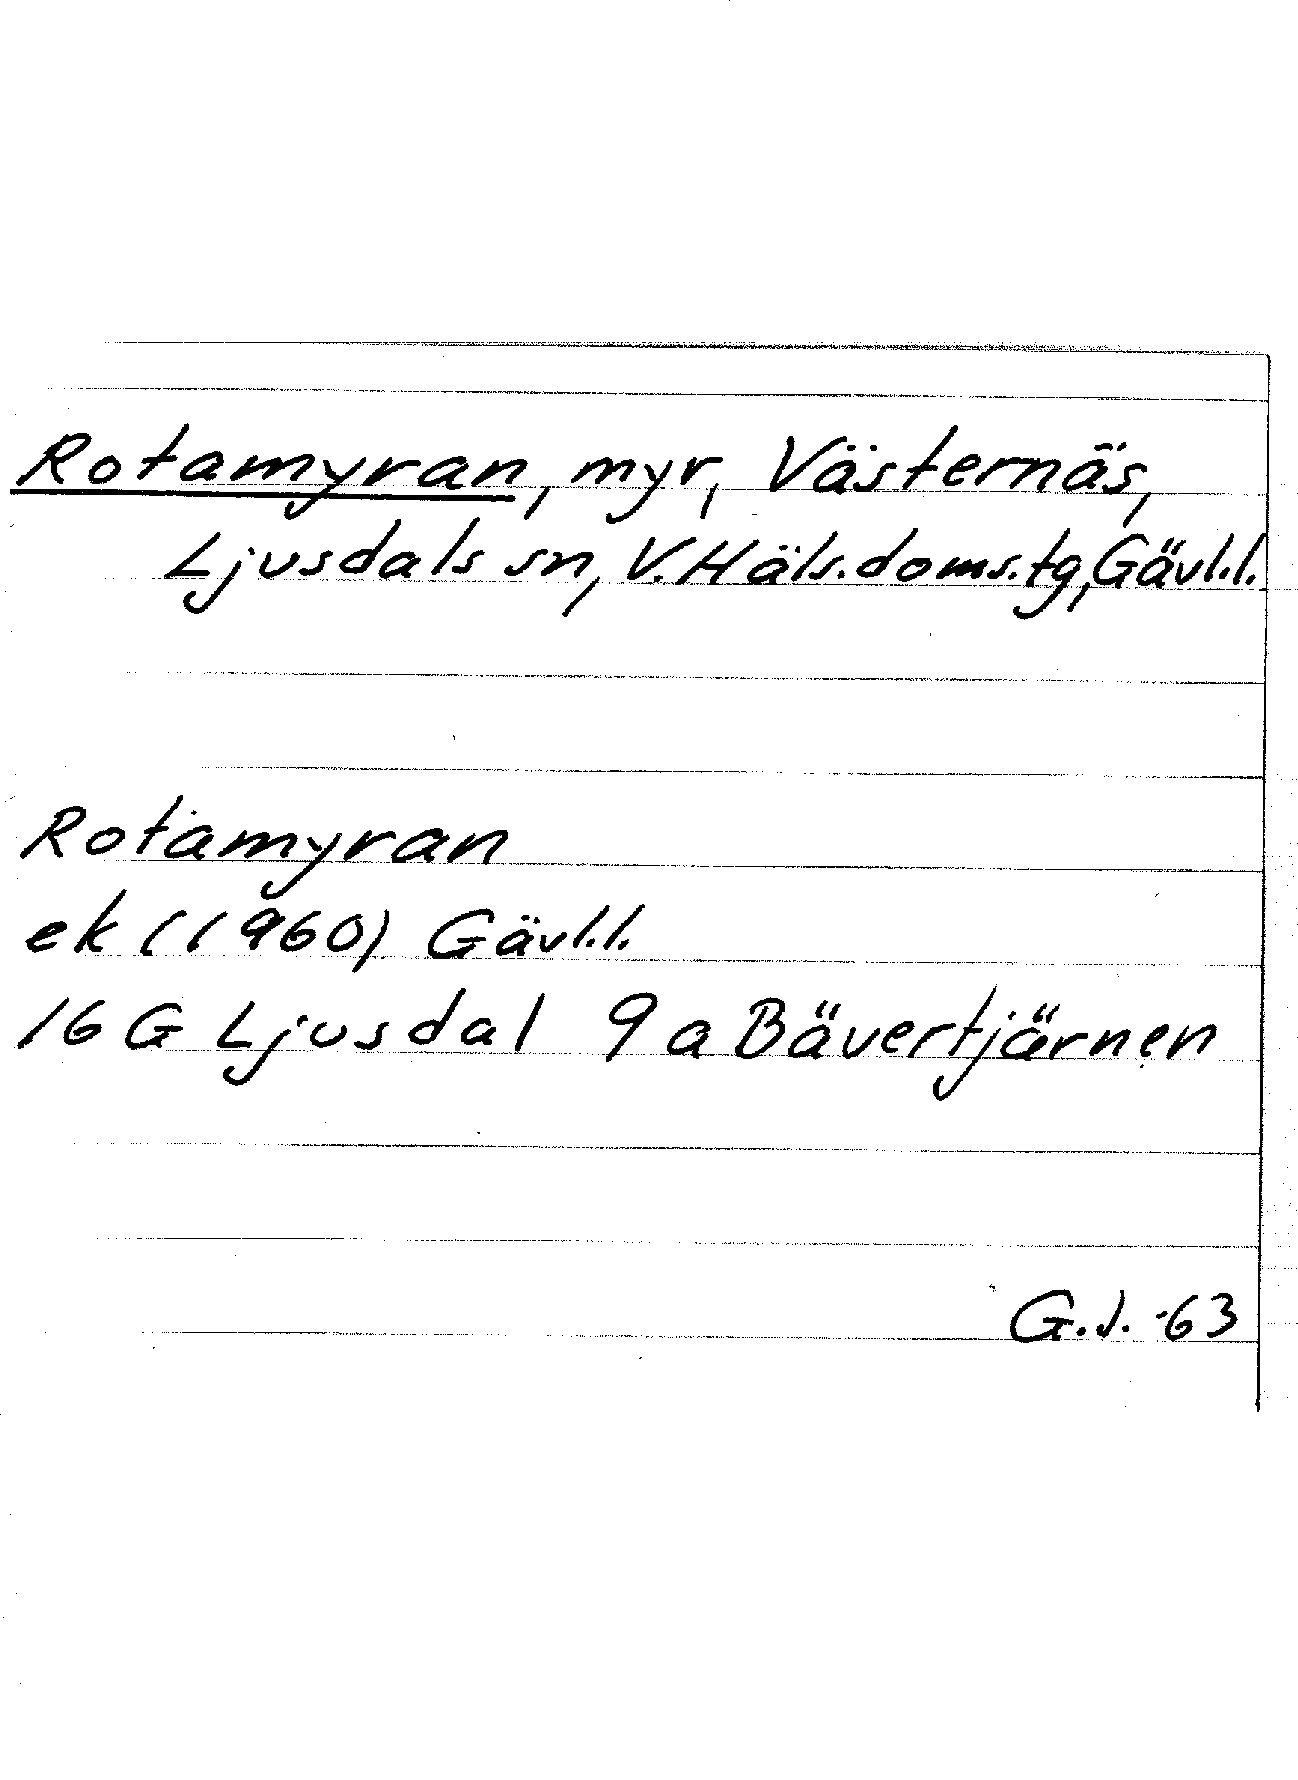 Rotamyran, myr, Västernäs,
Ljusdals sn, V. Häls. doms. tg, Gävl.l.
Rotamyran
ek (1960) Gävl.l.
16 G Ljusdal 9 a Bävertjärnen
G.J. -63